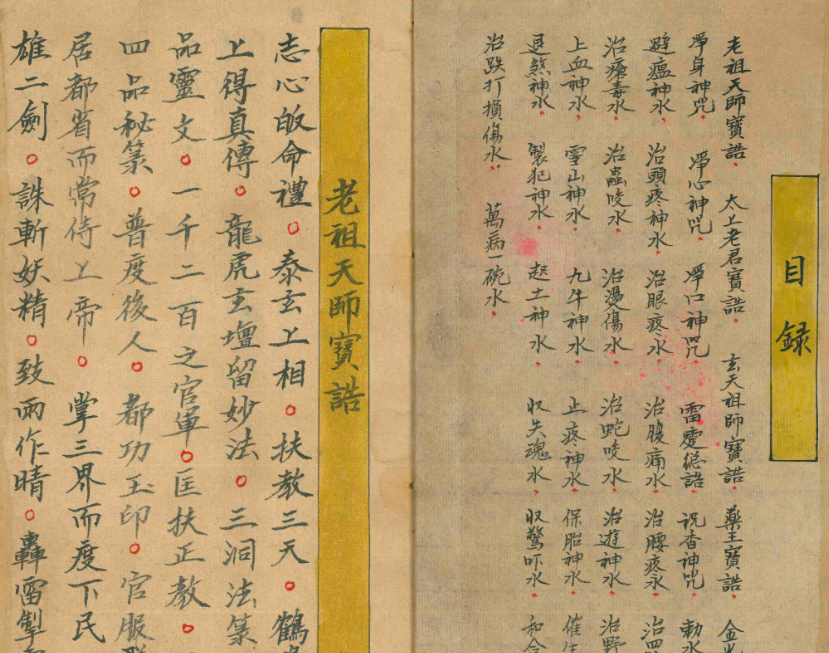 目録
老祖天師寶誥 太上老君寶誥 玄天祖師寶誥 藥王寶誥 金光
淨身神咒 淨心神咒 淨口神咒 雷霆總誥 祝香神咒 勅水
避瘟神水 治頭疼神水 治眼疼水 治腹痛水 治腰疼水 治四
治瘡毒水 治蟲咬水 治燙傷水 治蛇咬水 治遊神水 治野
止血神水 雪山神水 九牛神水 止疼神水 保胎神水 催生
退煞神水 製犯神水 起土神水 收失魂水 收驚吓水 和合
治跌打損傷水 萬病一碗水
老祖天師寶誥
志心皈命禮。泰玄上相。扶教三天。鶴鳴
上得真傳。龍虎玄壇留妙法。三洞法籙
品靈文。一千二百之官軍。匡扶正教。
四品秘籙。普度後人。都功玉印。官服
居都省而常侍上帝。掌三界而度下民
雄二劍。誅斬妖精。致雨作晴。轟雷掣